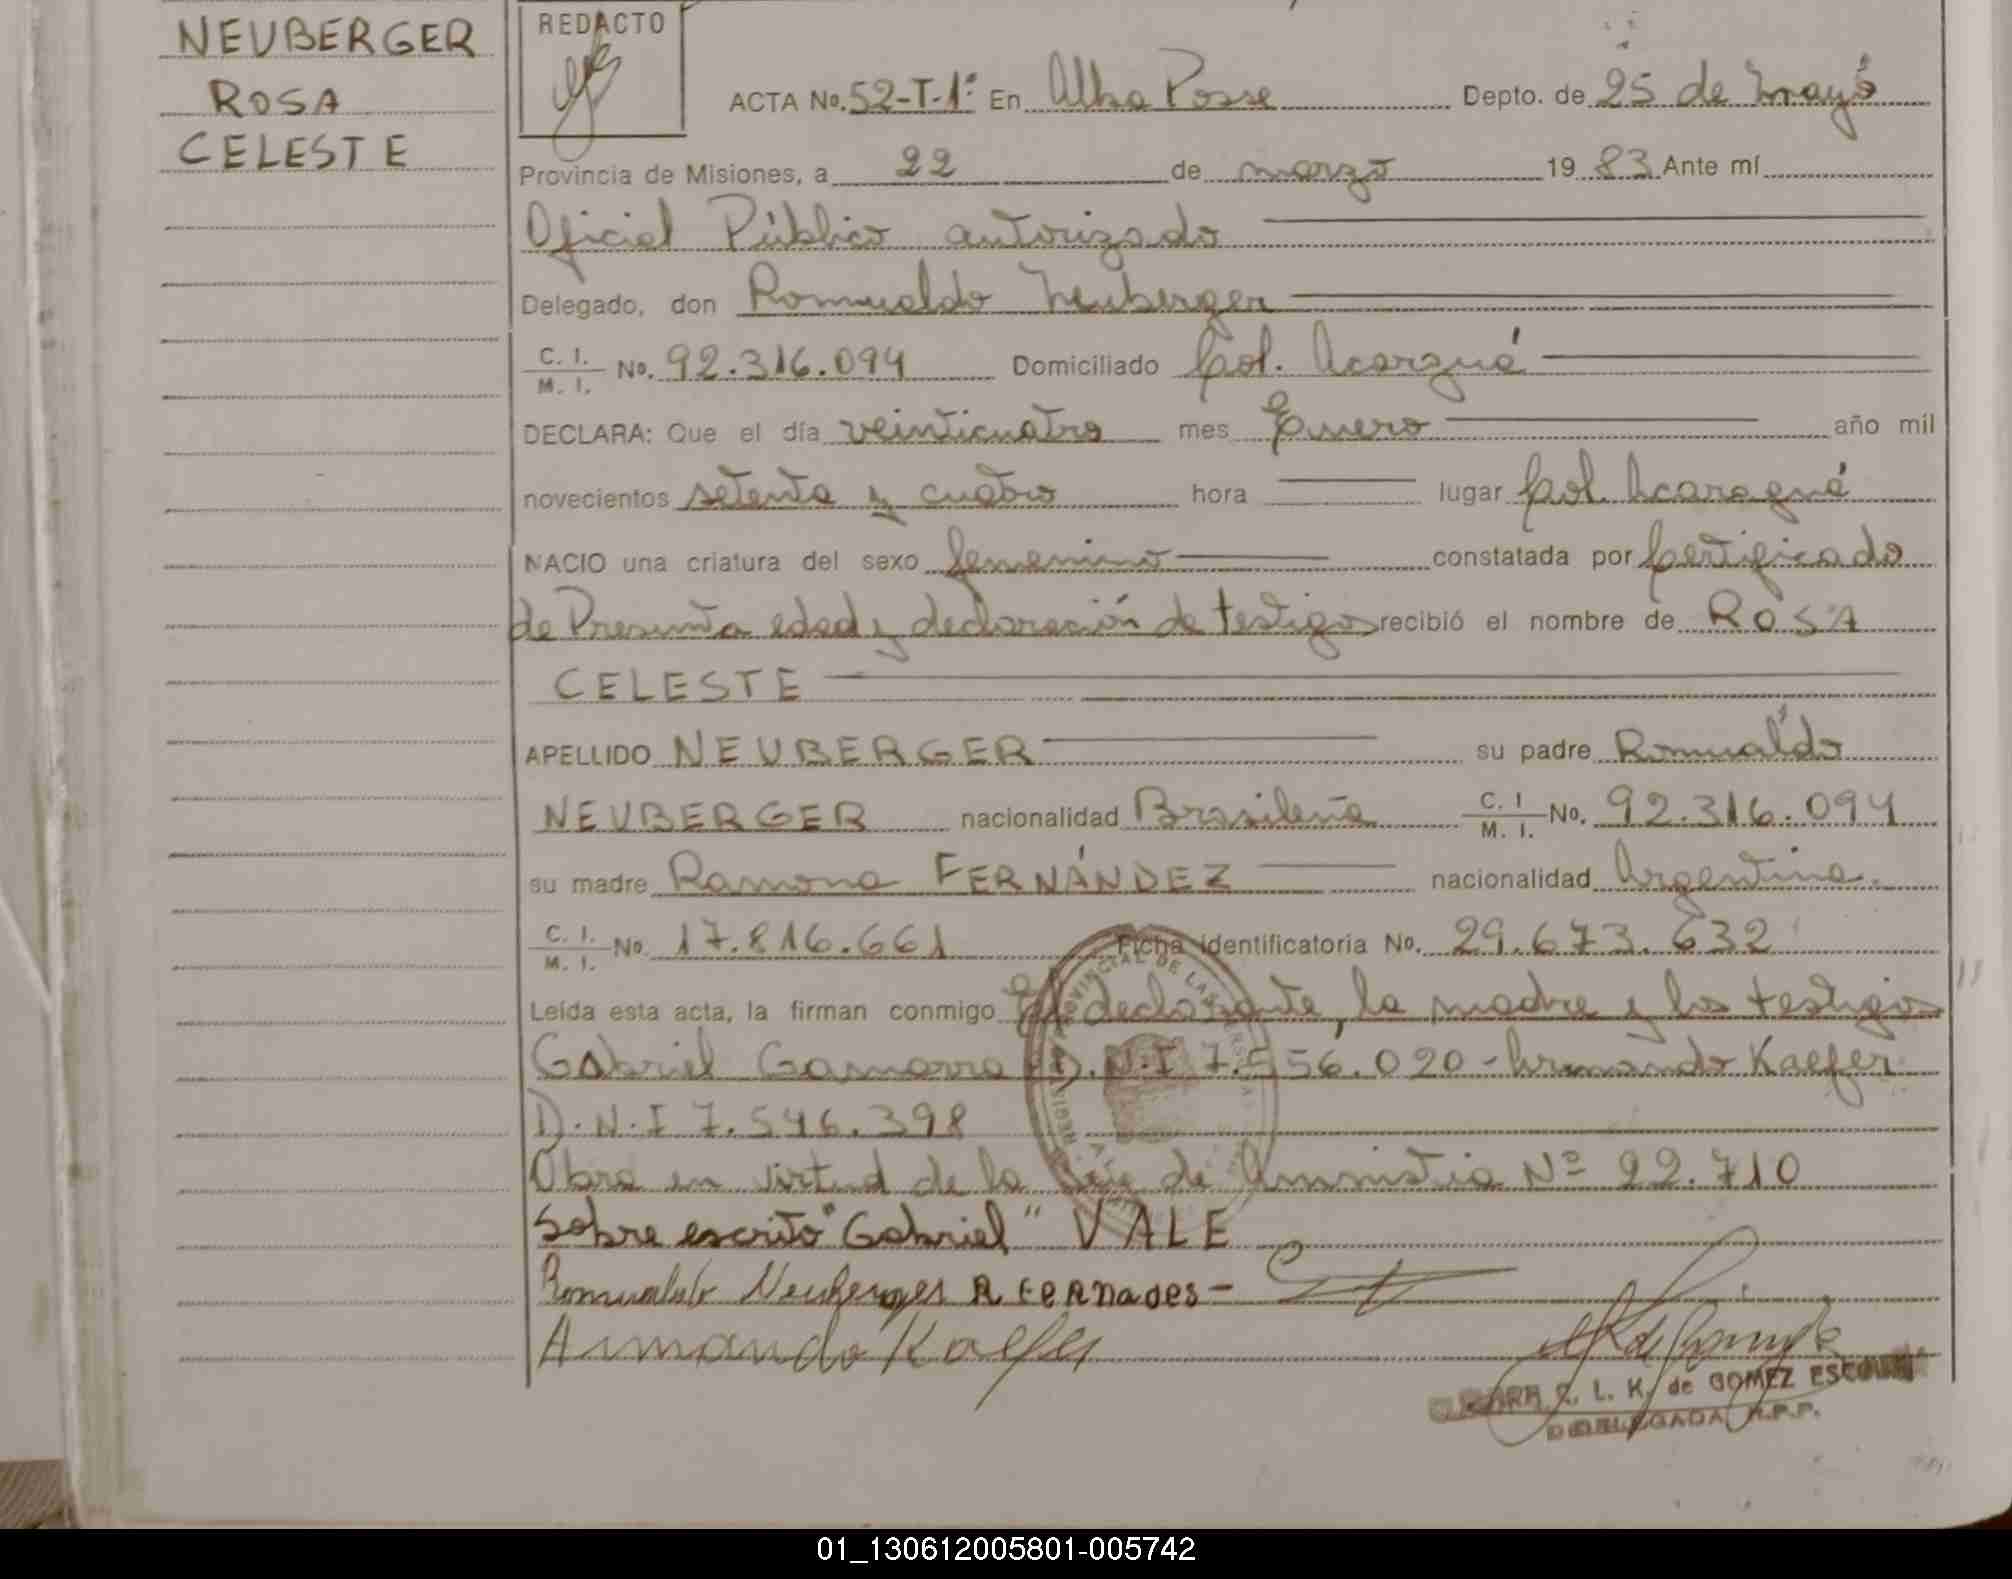 NEUBERGER
ROSA
CELESTE
REDACTO
ACTA No. 52-T-1º En Alba Posse Depto. de 25 de Mayo
Provincia de Misiones, a 22 de marzo 19 83 Ante mí
Oficial Público autorizado
Delegado, don Romualdo Neuberger
C. I. / M. I. No. 92.316.094 Domiciliado Col. Acaragué
DECLARA: Que el día veinticuatro mes Enero año mil
novecientos setenta y cuatro hora lugar Col. Acaragué
NACIO una criatura del sexo femenino constatada por Certificado
de Presunta edad y declaración de testigos recibió el nombre de ROSA
CELESTE
APELLIDO NEUBERGER su padre Romualdo
NEUBERGER nacionalidad Brasileña C. I / M. I. No. 92.316.094
su madre Ramona FERNÁNDEZ nacionalidad Argentina.
C. I. / M. I. No. 17.816.661 Ficha identificatoria No. 29.673.632
Leída esta acta, la firman conmigo El declarante, la madre y los testigos
Gabriel Gamarra D.N.I 7.556.020 - Armando Kaefer
D.N.I 7.546.398
Obra en virtud de la de Amnistia Nº 22.710
Sobre escrito "Gabriel" VALE
Romualdo Neuberger R Fernades -
Armando Kaefer
C. L. K. de GOMEZ
DELEGADA R.P.P.
01_130612005801-005742